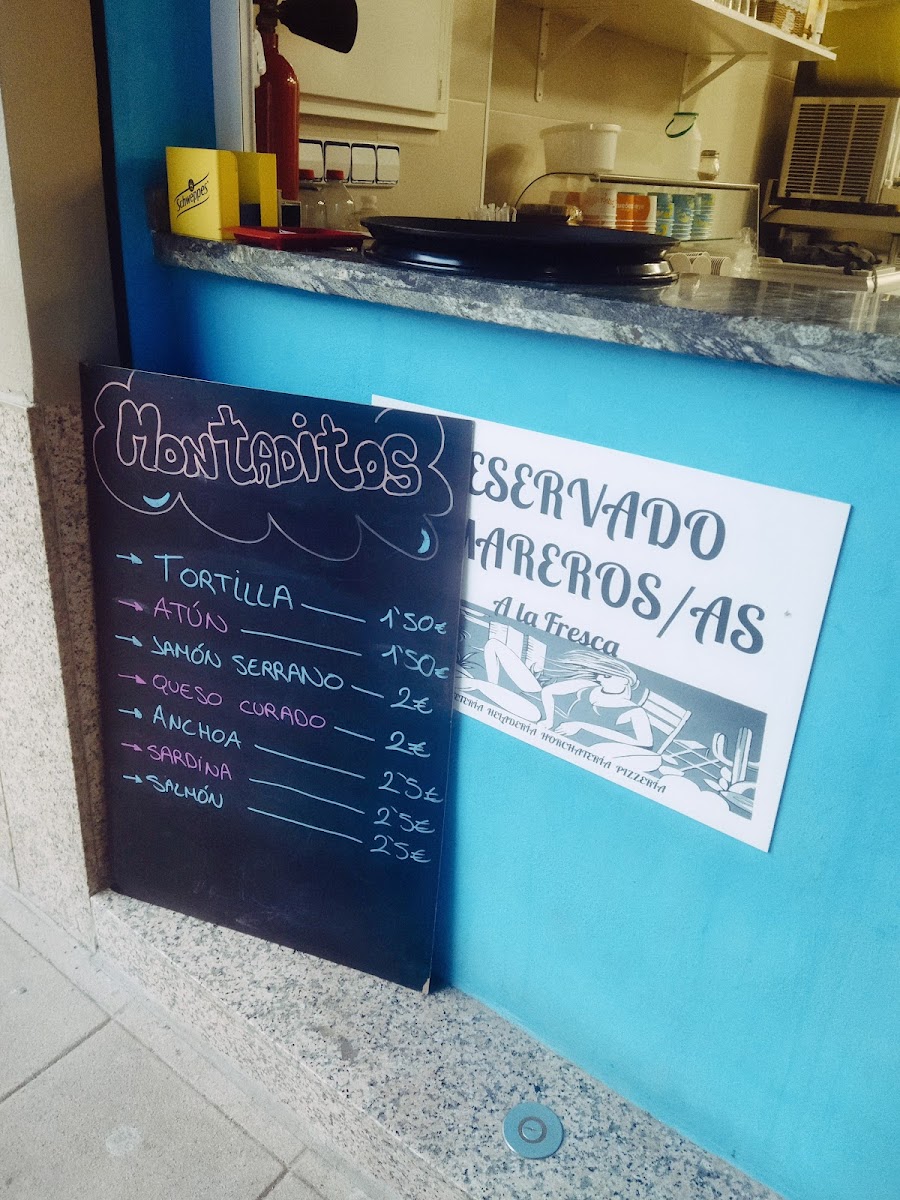 Schweppes
MONTADITOS
→ TORTILLA 1'50€
→ ATÚN 1'50€
→ JAMÓN SERRANO 2€
→ QUESO CURADO 2€
→ ANCHOA 2'5€
→ SARDINA 2'5€
→ SALMÓN 2'5€
ESERVADO
MAREROS/AS
A la Fresca
ETERÍA HELADERÍA HORCHATERÍA PIZZERÍA